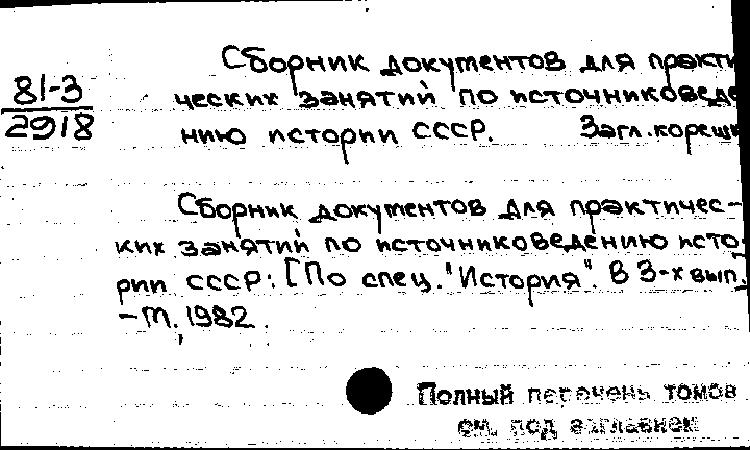 81-3
2918
Сборник документов для практи
ческих занятий по источниковеде
нию истории СССР. Загл. корешк
Сборник документов для практичес-
ких занятий по источниковедению исто
рии СССР: [По спец. "История". В 3-х вып.
- М., 1982.
Полный перечень томов
см. под заглавием